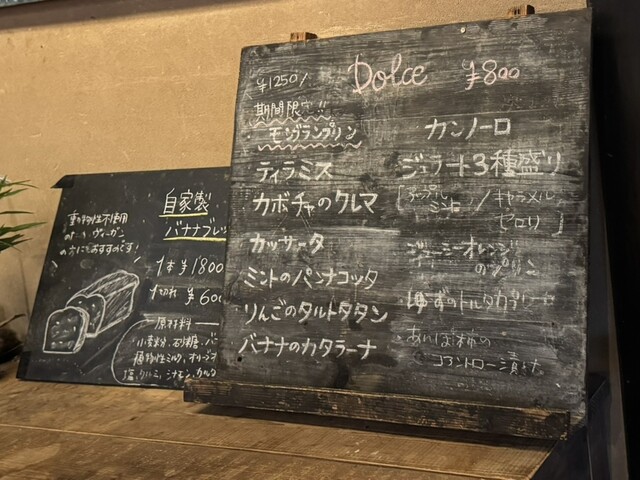 Dolce ¥800
¥1250
期間限定!!
モンブランプリン
ティラミス
カボチャのクレマ
カッサータ
ミントのパンナコッタ
りんごのタルトタタン
バナナのカタラーナ
カンノーロ
ジェラート3種盛り
ミント
/キャラメル
セロリ
ジューシーオレンジ
のプリン
ゆずのトルタカプレーゼ
あんぽ柿の
コアントロー漬け
自家製
バナナブレッ
動物性不使用
のため ヴィーガン
の方にもおすすめです!
1本 ¥1800
1切れ ¥600
原材料
小麦粉、石砂糖、バ
植物性ミルク、オリーブオ
塩、クルミ、シナモン、カルダ